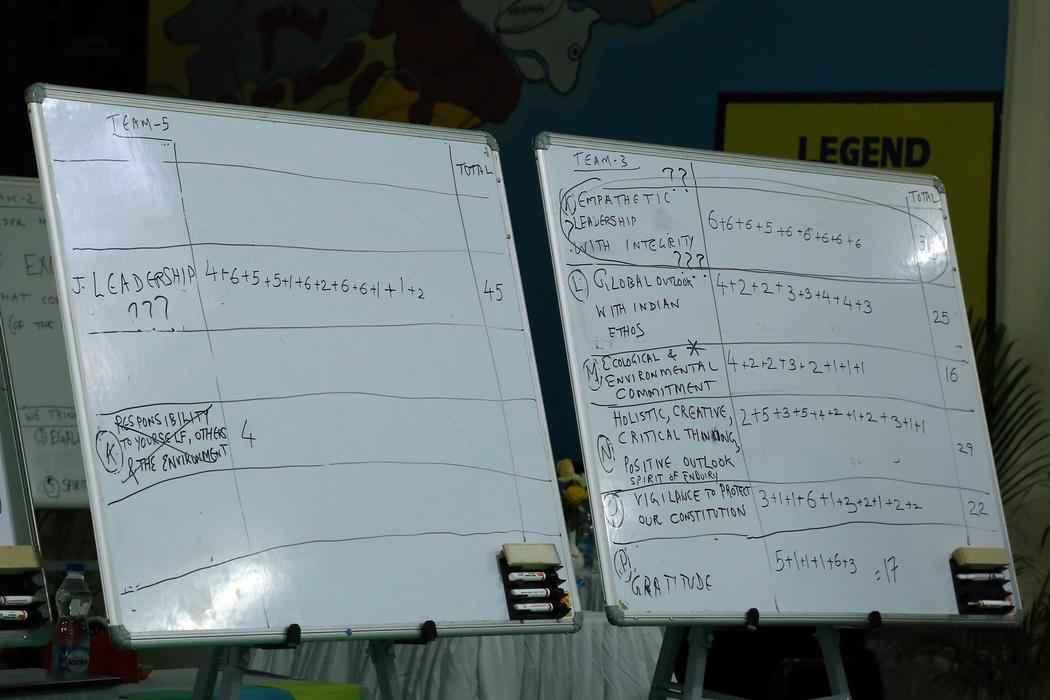 TEAM-5
TOTAL
J. LEADERSHIP
???
4+6+5+5+1+6+2+6+6+1+1+2
45
K
RESPONSIBILITY
TO YOURSELF, OTHERS
& THE ENVIRONMENT
4
TEAM-3
??
TOTAL
K EMPATHETIC
LEADERSHIP
WITH INTEGRITY
???
6+6+6+5+6+6+6+6+6
L GLOBAL OUTLOOK
WITH INDIAN
ETHOS
4+2+2+3+3+4+4+3
25
M ECOLOGICAL &
ENVIRONMENTAL
COMMITMENT
4+2+2+3+2+1+1+1
16
N
HOLISTIC, CREATIVE,
CRITICAL THINKING,
POSITIVE OUTLOOK
SPIRIT OF ENQUIRY
2+5+3+5+4+2+1+2+3+1+1
29
VIGILANCE TO PROTECT
OUR CONSTITUTION
3+1+1+6+1+3+2+1+2+2
22
P
GRATITUDE
5+1+1+1+6+3
=17
LEGEND